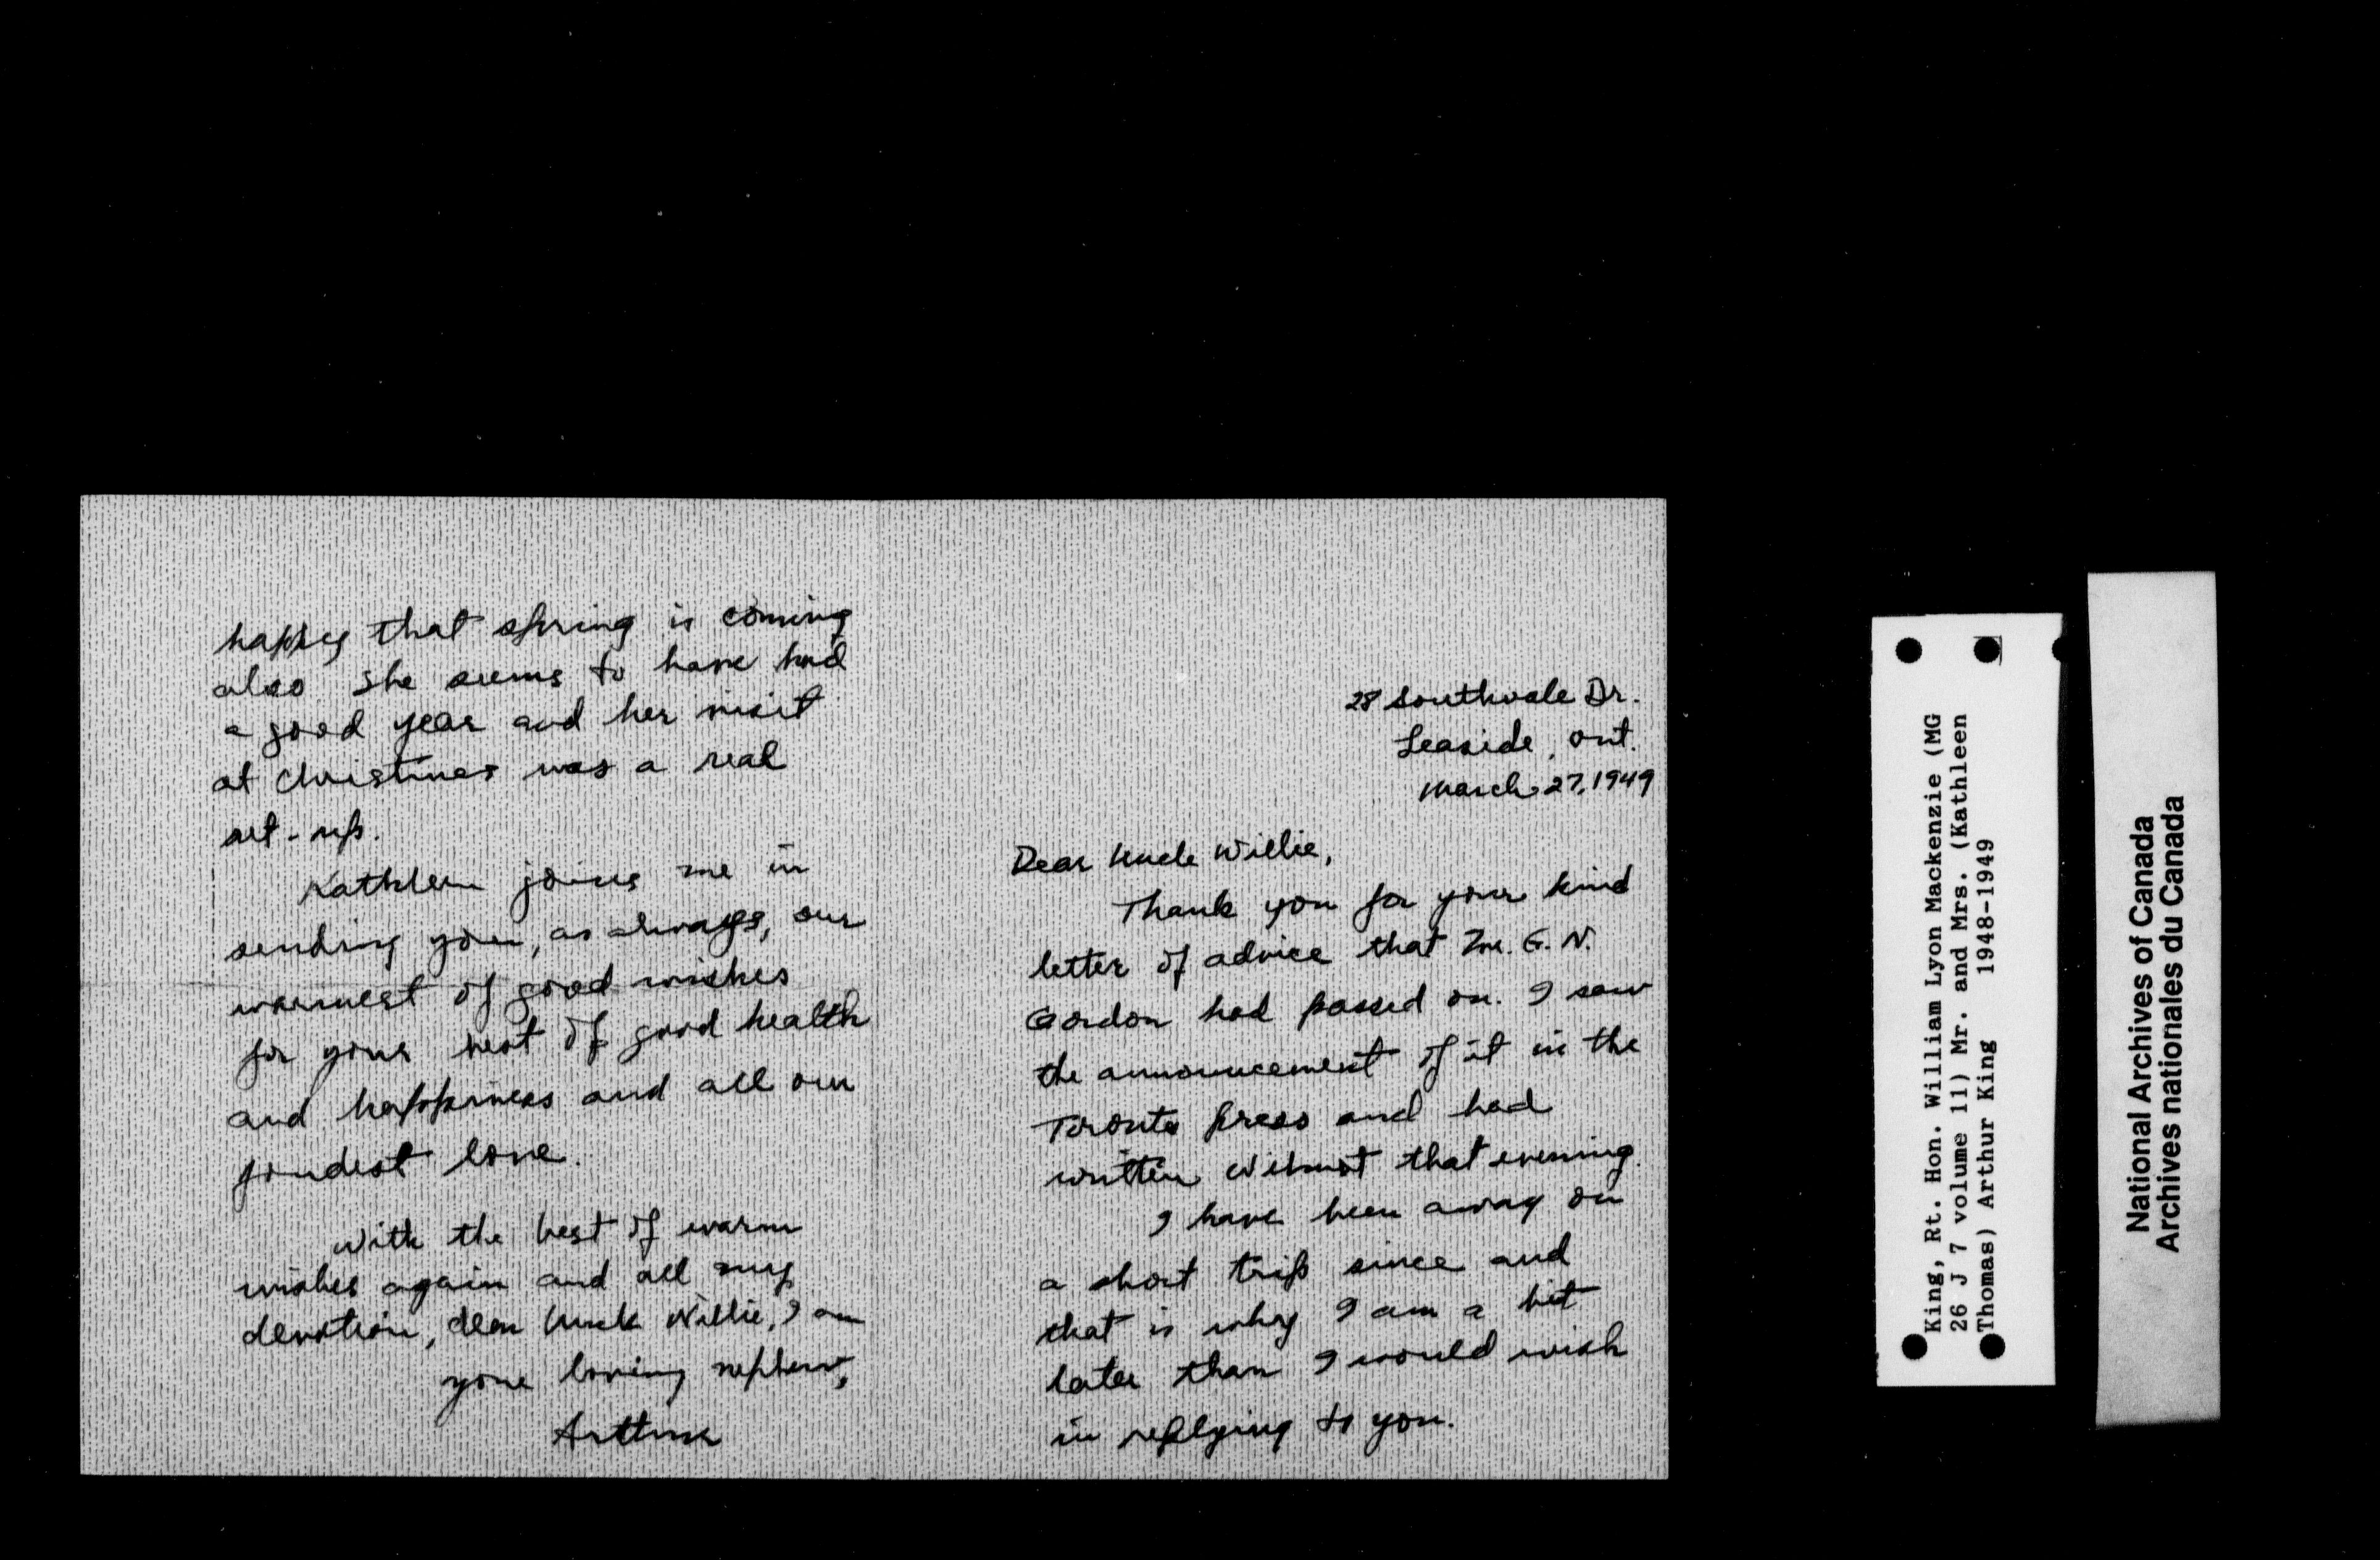 happy that spring is coming
also she seems to have had
a good year and her visit
at Christmas was a real
set-up.
Kathleen joins me in
sending you, as always, our
warmest of good wishes
for your best of good health
and happiness and all our
fondest love.
With the best of warm
wishes again and all my
devotion, dear Uncle Willie, I am
your loving nephew,
Arthur
28 Southvale Dr.
Leaside, Ont.
March 27, 1949
Dear Uncle Willie,
Thank you for your kind
letter of advice that Mr. G. N.
Gordon had passed on. I saw
the announcement of it in the
Toronto press and had
written Wilmot that evening.
I have been away on
a short trip since and
that is why I am a bit
later than I would wish
in replying to you.
King, Rt. Hon. William Lyon Mackenzie (MG
26 J 7 volume 11) Mr. and Mrs. (Kathleen
Thomas) Arthur King 1948-1949
National Archives of Canada
Archives nationales du Canada